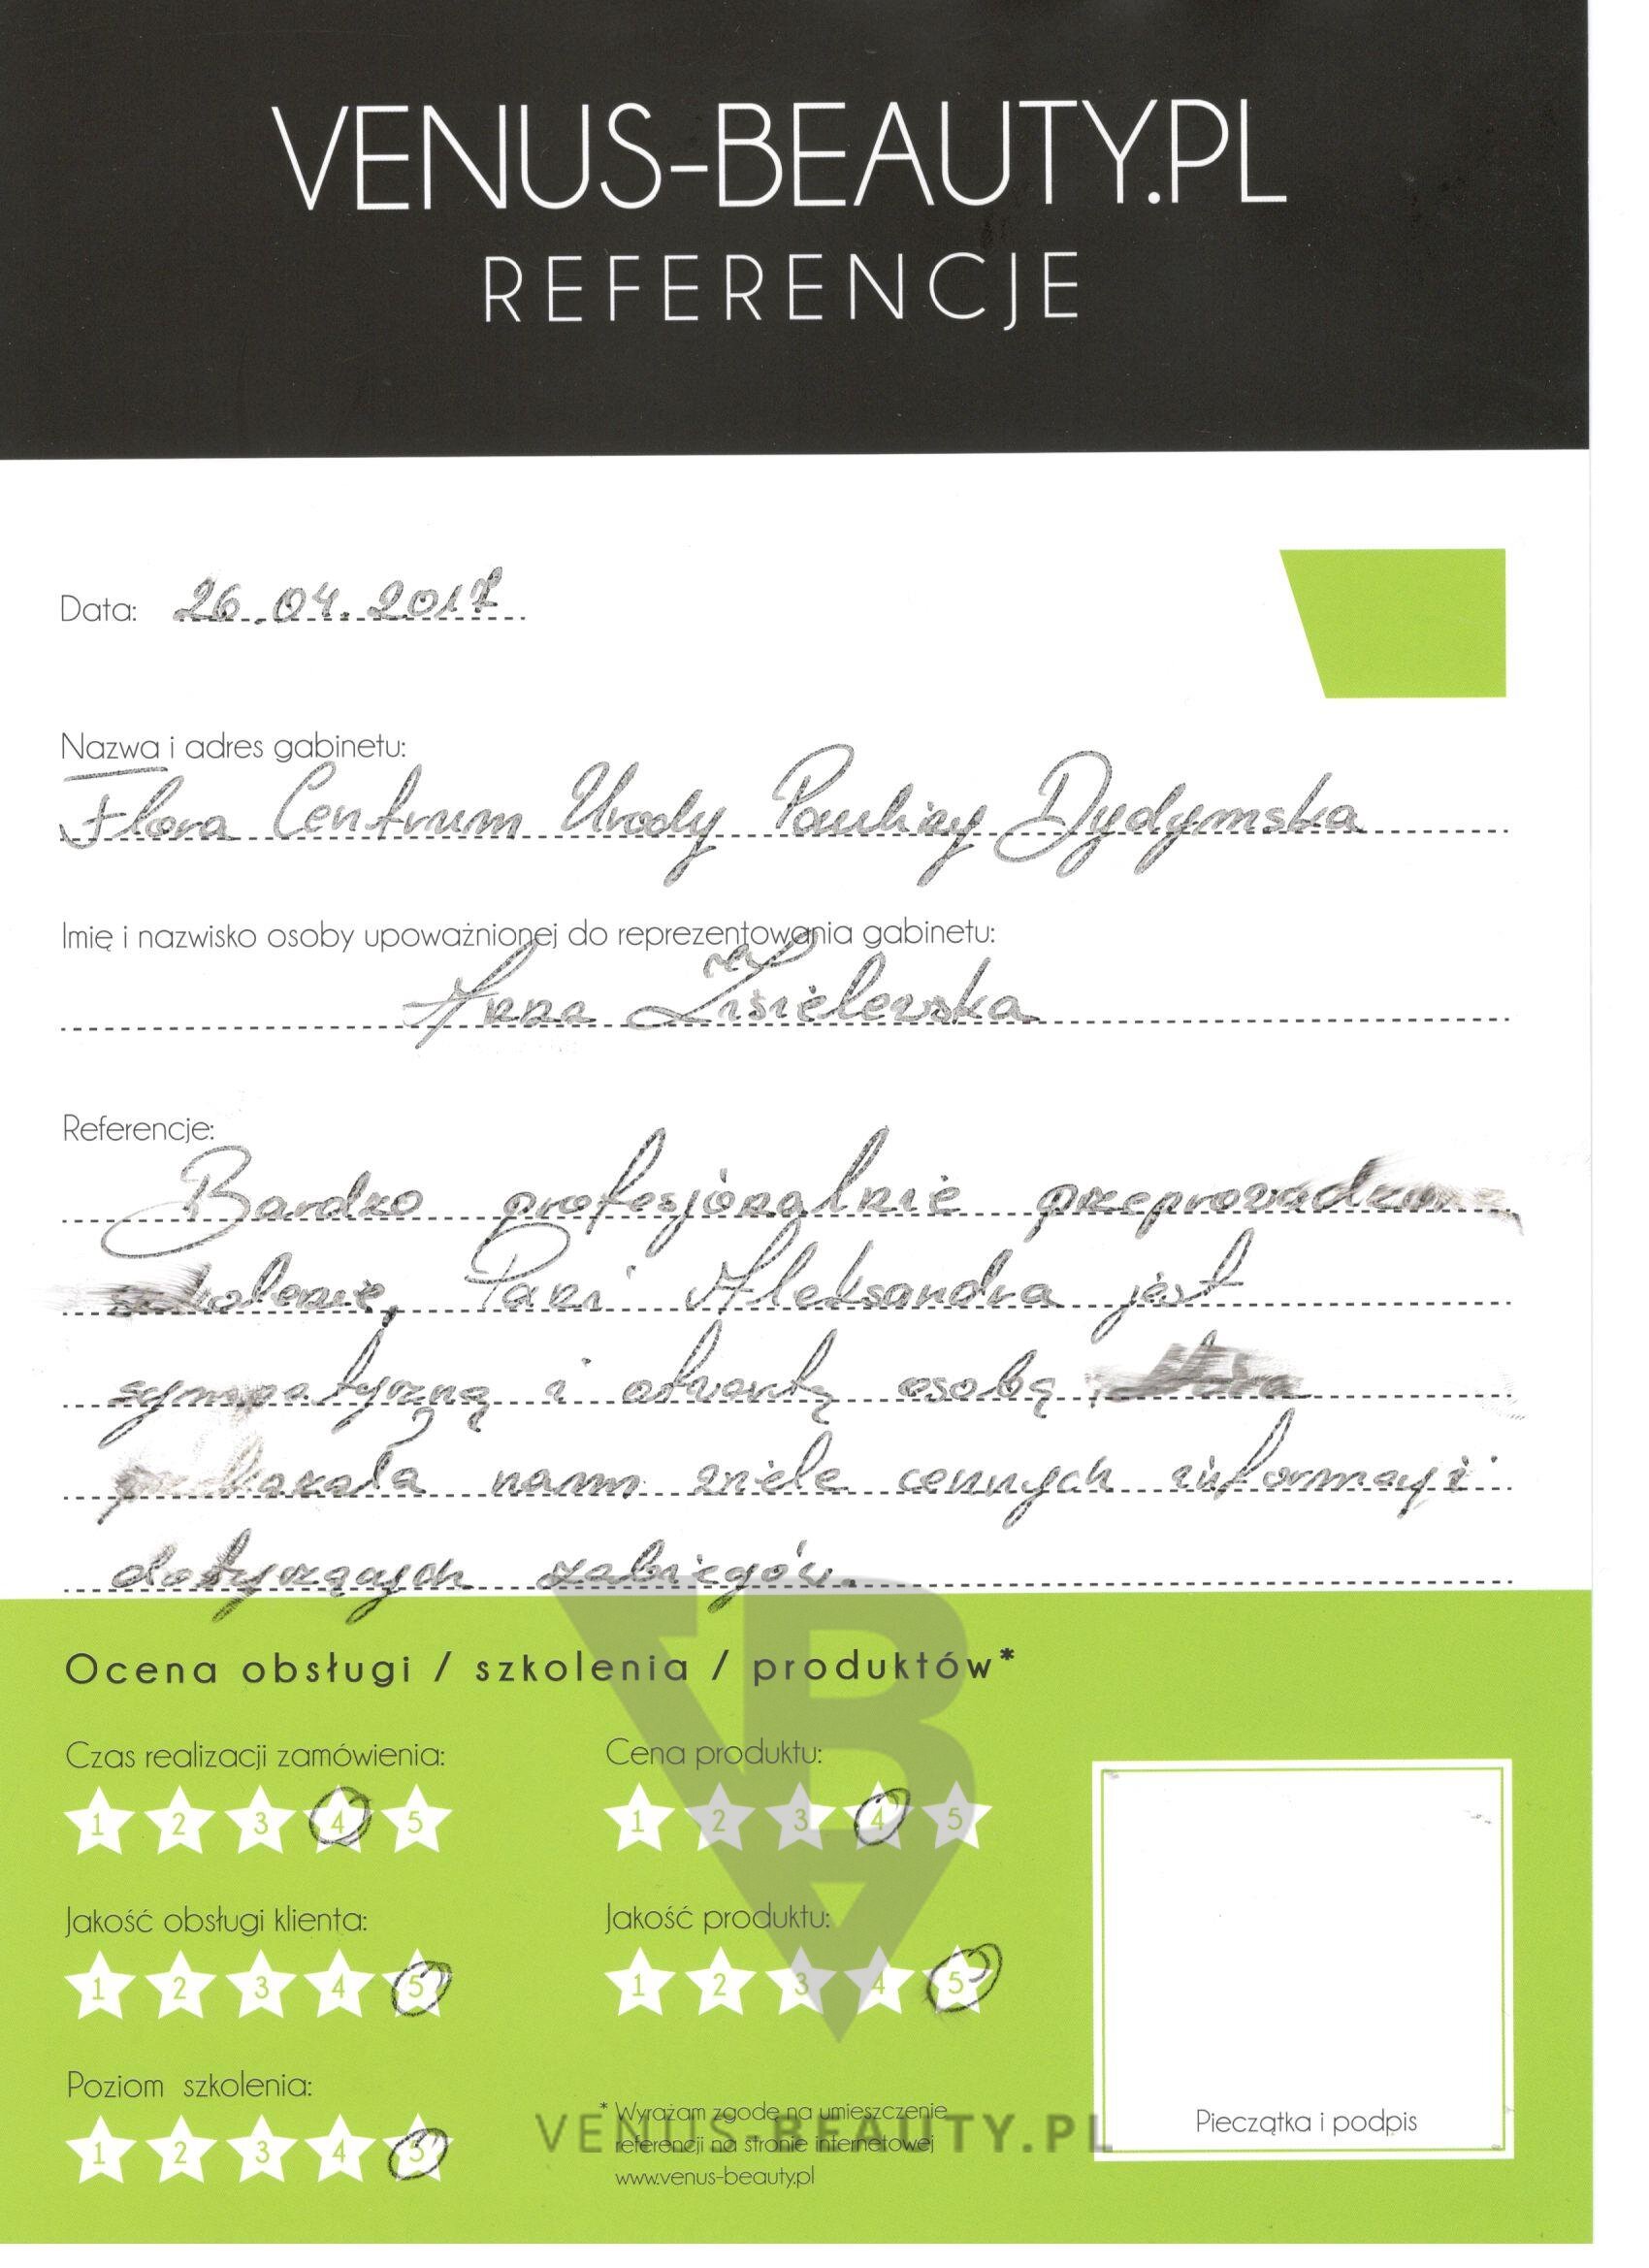 VENUS-BEAUTY.PL
REFERENCJE
Data: 26.04.2017
Nazwa i adres gabinetu:
Flora Centrum Urody Pauliny Dydymska
Imię i nazwisko osoby upoważnionej do reprezentowania gabinetu:
Anna
Referencje:
Bardzo profesjonalnie
szkolenie, Pani Aleksandra jest
sympatyczną i otwartą osobą, która
przekazała nam wiele cennych informacji
dotyczących zabiegów.
Ocena obsługi / szkolenia / produktów*
Czas realizacji zamówienia: Cena produktu:
1 2 3 4 5 1 2 3 4 5
Jakość obsługi klienta: Jakość produktu:
1 2 3 4 5 1 2 3 4 5
Poziom szkolenia:
1 2 3 4 5
* Wyrażam zgodę na umieszczenie
referencji na stronie internetowej
www.venus-beauty.pl
VENUS-BEAUTY.PL
Pieczątka i podpis